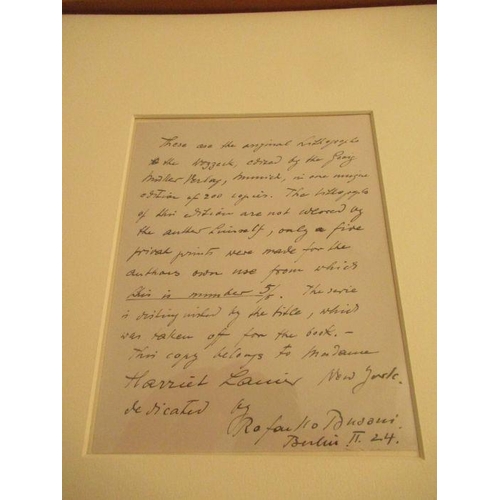 These are the original lithographs
to the Wozzeck, edited by the Georg
Müller Verlag, Munich, in one unique
edition of 200 copies. The lithographs
of this edition are not colored by
the author himself, only a five
privat prints were made for the
authors own use from which
this is number 5/5. The serie
is distinguished by the title, which
was taken off for the book. –
This copy belongs to Madame
Harriet Lanier New York.
dedicated by
Rafaello Busoni.
Berlin II. 24.